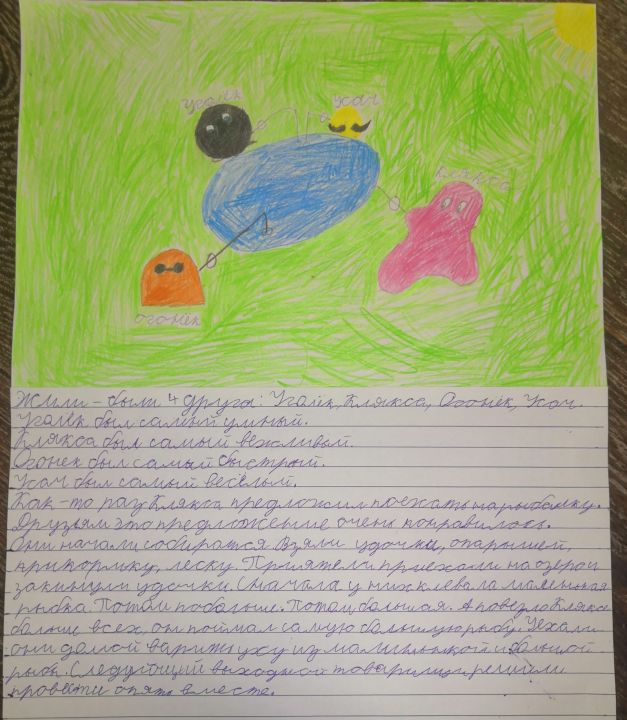 Уголёк
Усач
Клякса
Огонёк
Жили-были 4 друга: Уголёк, Клякса, Огонёк, Усач.
Уголёк был самый умный.
Клякса был самый вежливый.
Огонек был самый быстрый.
Усач был самый весёлый.
Как-то раз Клякса предложил поехать на рыбалку.
Друзьям это предложение очень понравилось.
Они начали собиратся. Взяли удочки, опарышей,
прикормку, леску. Приятели приехали на озеро и
закинули удочки. Сначала у них клевала маленькая
рыбка. Потом побольше. Потом большая. А повезло Кляксе
больше всех, он поймал самую большую рыбу. Уехали
они домой варить уху из маленькой и большой
рыбы. Следующий выходной товарищи решили
провести опять вместе.